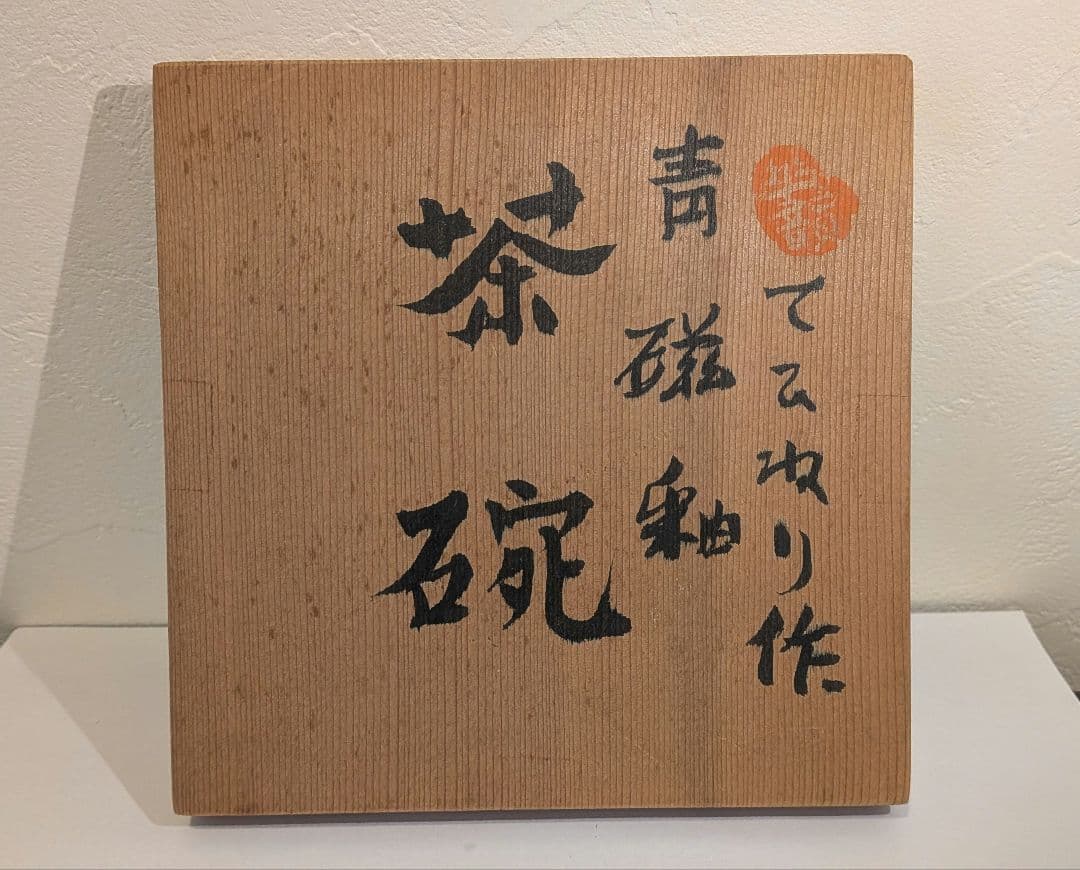 てひねり作
青磁釉
茶碗